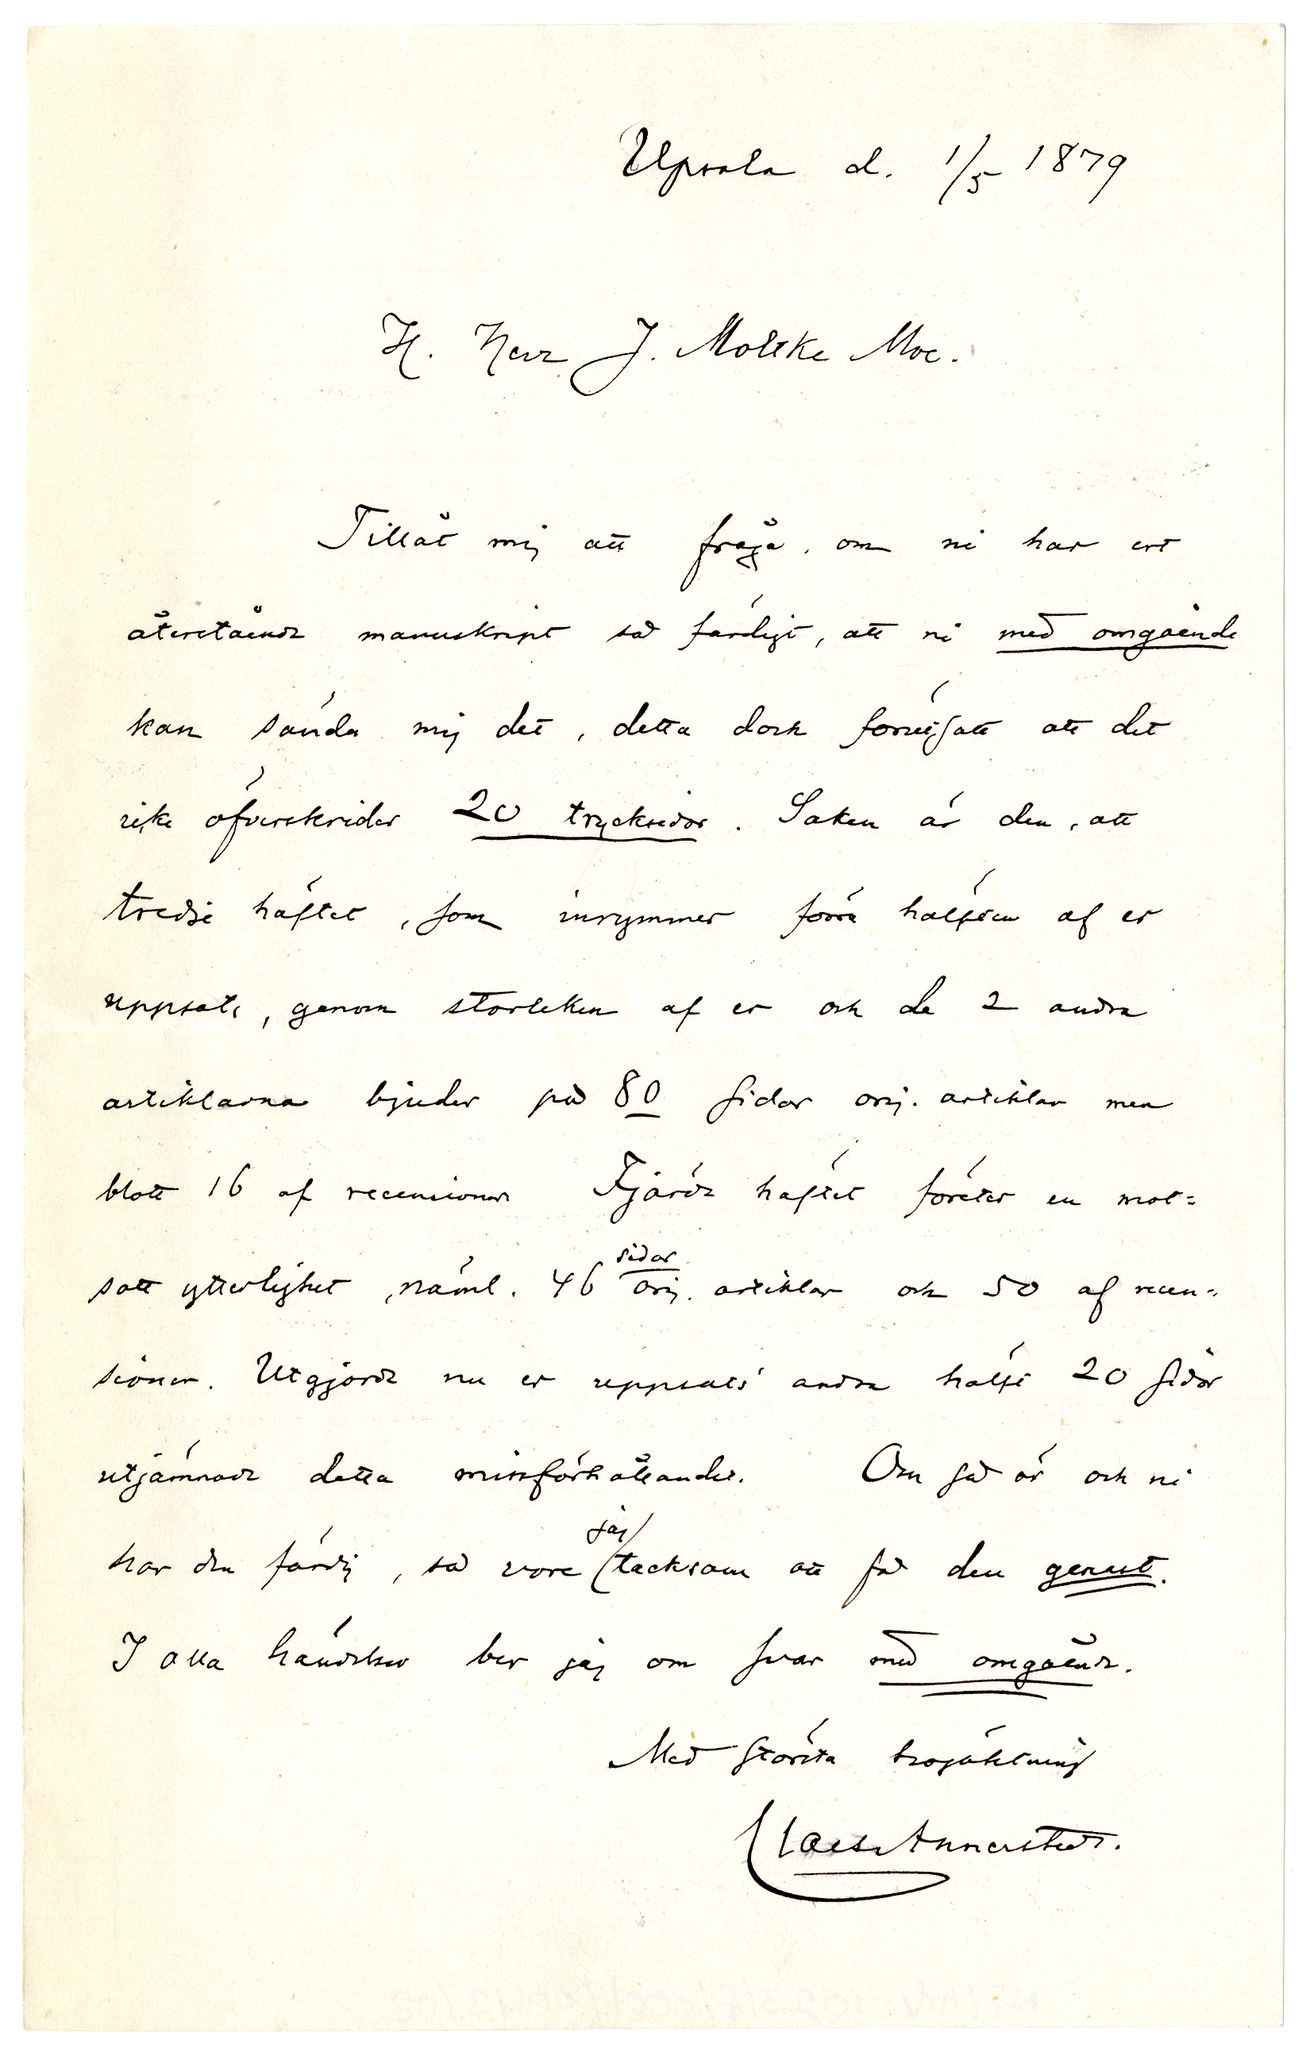 Upsala d. 1/5 1879
H. Herr J. Moltke Moe.
Tillåt mig att fråga, om ni har ert
återstående manuskript så färdigt, att ni med omgående
kan sända mig det, detta dock förutsatt att det
icke öfverskrider 20 trycksidor. Saken är den, att
tredje häftet, som inrymmer förra hälften af er
uppsats, genom storleken af er och de 2 andra
artiklarna bjuder på 80 sidor orig. artiklar men
blott 16 af recensioner Fjärde häftet företer en mot=
satt ytterlighet, näml. 46 sidor orig. artiklar och 50 af recen=
sioner. Utgjorde nu er uppsats' andra hälft 20 sidor
utjämnade detta missförhållandet. Om så är och ni
har den färdig, så vore jag tacksam att få den genast.
I alla händelser ber jag om svar med omgående.
Med största högaktning
Claes Annerstedt.